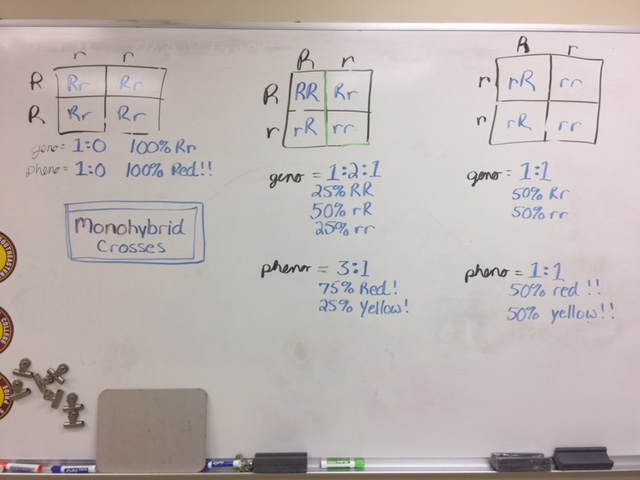 r r
R Rr Rr
R Rr Rr
geno = 1:0 100% Rr
pheno = 1:0 100% Red!!
Monohybrid
Crosses
R r
R RR Rr
r rR rr
geno = 1:2:1
25% RR
50% rR
25% rr
pheno = 3:1
75% Red!
25% Yellow!
R r
r rR rr
r rR rr
geno = 1:1
50% Rr
50% rr
pheno = 1:1
50% red !!
50% yellow!!